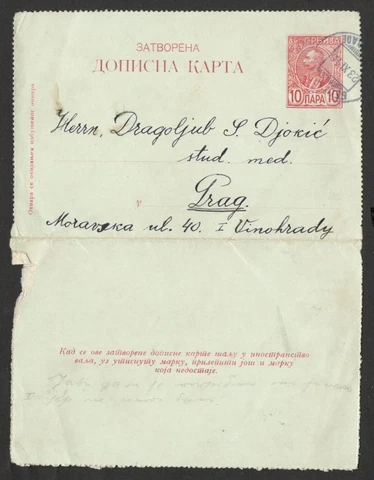 ЗАТВОРЕНА
ДОПИСНА КАРТА
СРБИЈА
10 ПАРА 10
Herrn, Dragoljub S. Djokić
stud. med.
У
Prag.
Moravska ul. 40. I Vinohrady
Отвара се опкидањем избушених ивица
Кад се ове затворене дописне карте шаљу у иностранство
ваља, уз утиснуту марку, прилепити још и марку
која недостаје.